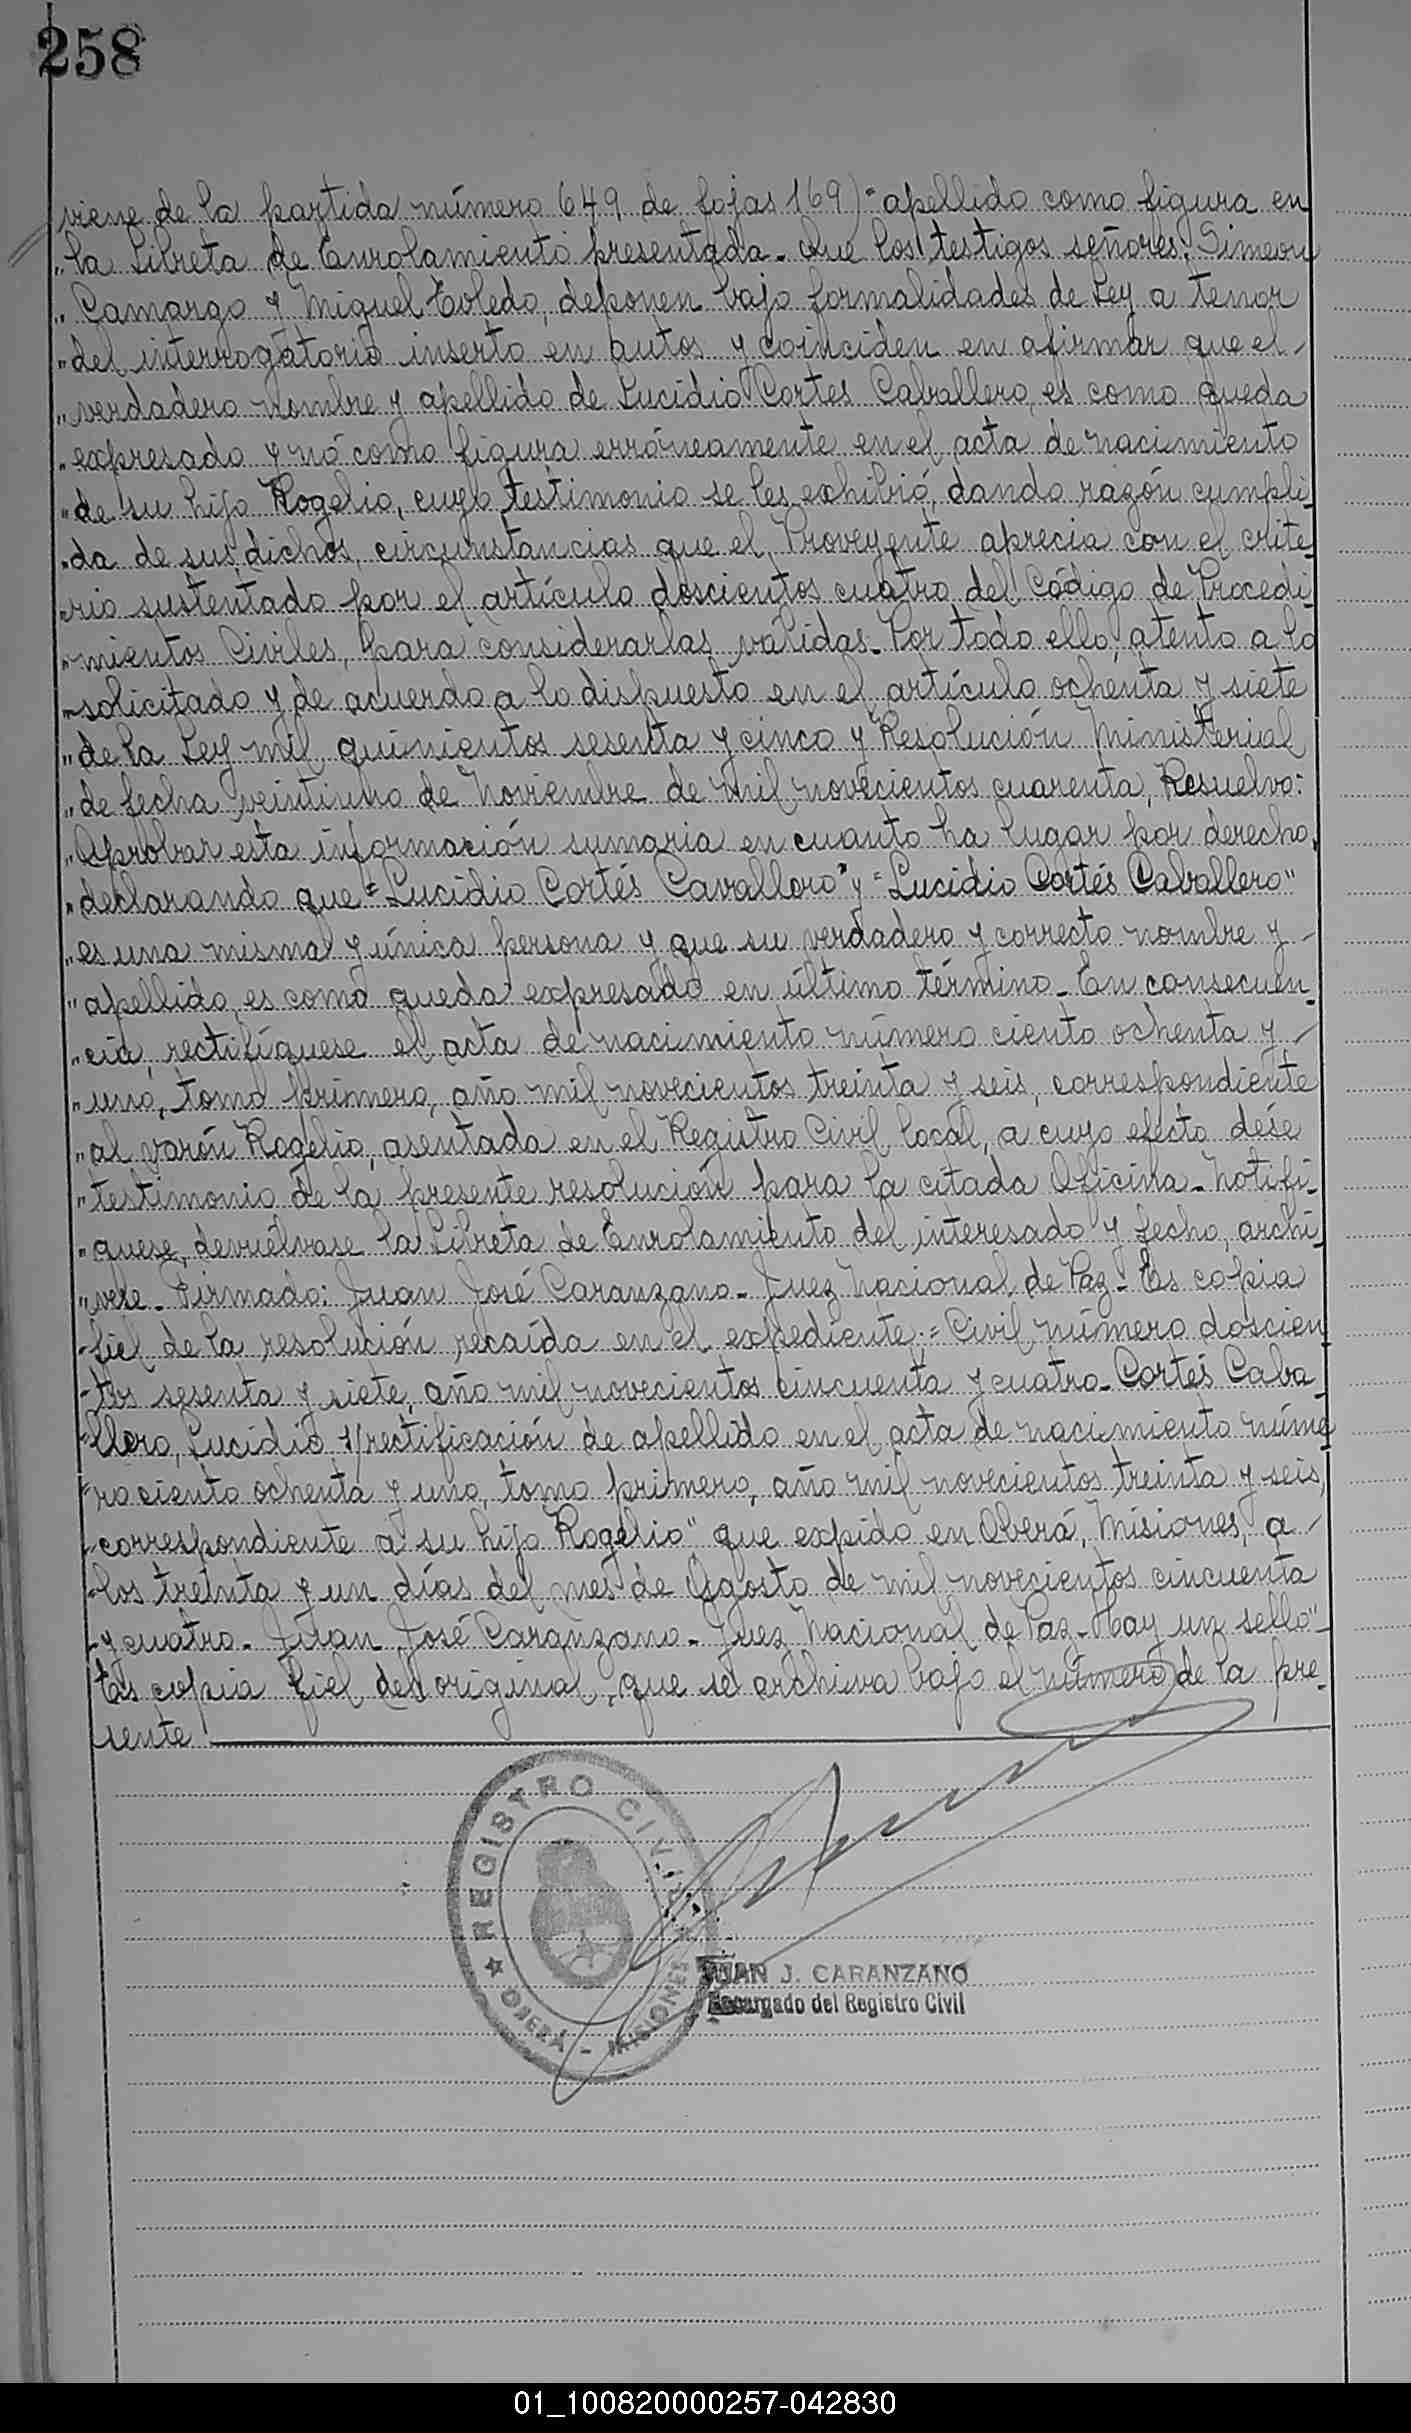 258
viene de la partida número 649 de fojas 169)-"apellido como figura en
"la Libreta de Enrolamiento presentada.- Que los testigos señores: Simeon
"Camargo y Miguel Toledo, deponen bajo formalidades de Ley a tenor
"del interrogatorio inserto en autos y coinciden en afirmar que el-
"verdadero nombre y apellido de Lucidio Cortes Caballero, es como queda
"expresado y nó como figura erróneamente en el acta de nacimiento
"de su hijo Rogelio, cuyo testimonio se les exhibió, dando razón cumpli-
"da de sus dichos, circunstancias que el Proveyente aprecia con el crite-
"rio sustentado por el artículo doscientos cuatro del Código de Procedi-
"mientos Civiles, para considerarlas válidas.- Por todo ello, atento a lo
"solicitado y de acuerdo a lo dispuesto en el artículo ochenta y siete
"de la Ley mil quinientos sesenta y cinco y Resolución Ministerial
"de fecha veintiuno de Noviembre de mil novecientos cuarenta, Resuelvo:
"Aprobar esta información sumaria en cuanto ha lugar por derecho,
"declarando que "Lucidio Cortés Cavallero" y "Lucidio Cortés Caballero"
"es una misma y única persona y que su verdadero y correcto nombre y-
"apellido, es como queda expresado en último término.- En consecuen-
"cia, rectifíquese el acta de nacimiento número ciento ochenta y-
"uno, tomo primero, año mil novecientos treinta y seis, correspondiente
"al varón Rogelio, asentada en el Registro Civil local, a cuyo efecto dése
"testimonio de la presente resolución para la citada Oficina.- Notifí-
"quese, devuélvase la Libreta de Enrolamiento del interesado y fecho, archí-
"vese.- Firmado: Juan José Caranzano.- Juez Nacional de Paz.- Es copia
"fiel de la resolución recaída en el expediente:- "Civil número doscien-
"tos sesenta y siete, año mil novecientos cincuenta y cuatro.- Cortés Caba-
"llero, Lucidio s/rectificación de apellido en el acta de nacimiento núme-
"ro ciento ochenta y uno, tomo primero, año mil novecientos treinta y seis,
"correspondiente a su hijo Rogelio" que expido en Oberá, Misiones, a-
"los treinta y un días del mes de Agosto de mil novecientos cincuenta
"y cuatro.- Juan José Caranzano.- Juez Nacional de Paz.- Hay un sello".-
Es copia fiel del original, que se archiva bajo el número de la pre-
sente
REGISTRO CIVIL
OBERÁ - MISIONES
JUAN J. CARANZANO
Encargado del Registro Civil
01_100820000257-042830